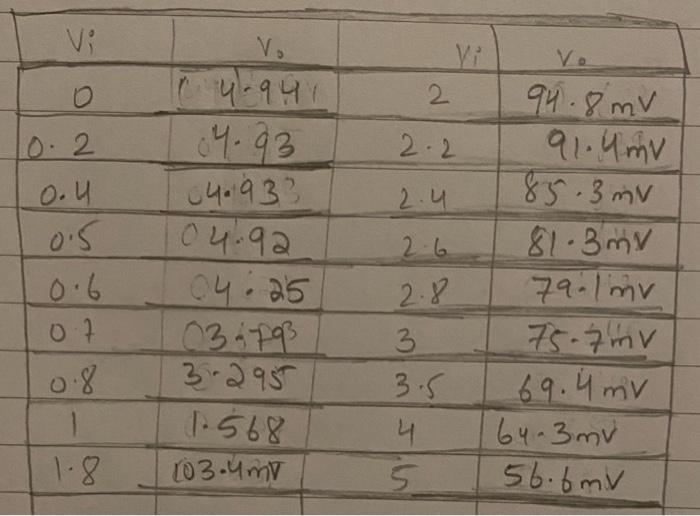 Vi Vo Vi Vo
0 4.941 2 94.8mV
0.2 04.93 2.2 91.4mV
0.4 04.933 2.4 85.3mV
0.5 04.92 2.6 81.3mV
0.6 04.25 2.8 79.1mV
0.7 03.793 3 75.7mV
0.8 3.295 3.5 69.4mV
1 1.568 4 64.3mV
1.8 103.4mV 5 56.6mV